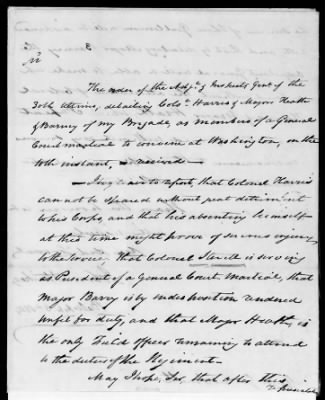 Sir
The order of the Adjt. & Inspector Genl. of the
30th ultimo, detailing Cols. Harris & Majors Heath
& Barney of my Brigade, as members of a General
Court martial to convene at Washington, on the
10th instant, is received —
— I beg leave to report, that Colonel Harris
cannot be spared without great detriment
to his Corps, and that his absenting himself
at this time might prove of serious injury
to the service, that Colonel is serving
as President of a General Court Martial, that
Major Barry is by indisposition rendered
unfit for duty, and that Major Heath, is
the only Field officer remaining to attend
to the duties of the Regiment.
May I hope, Sir, that after this